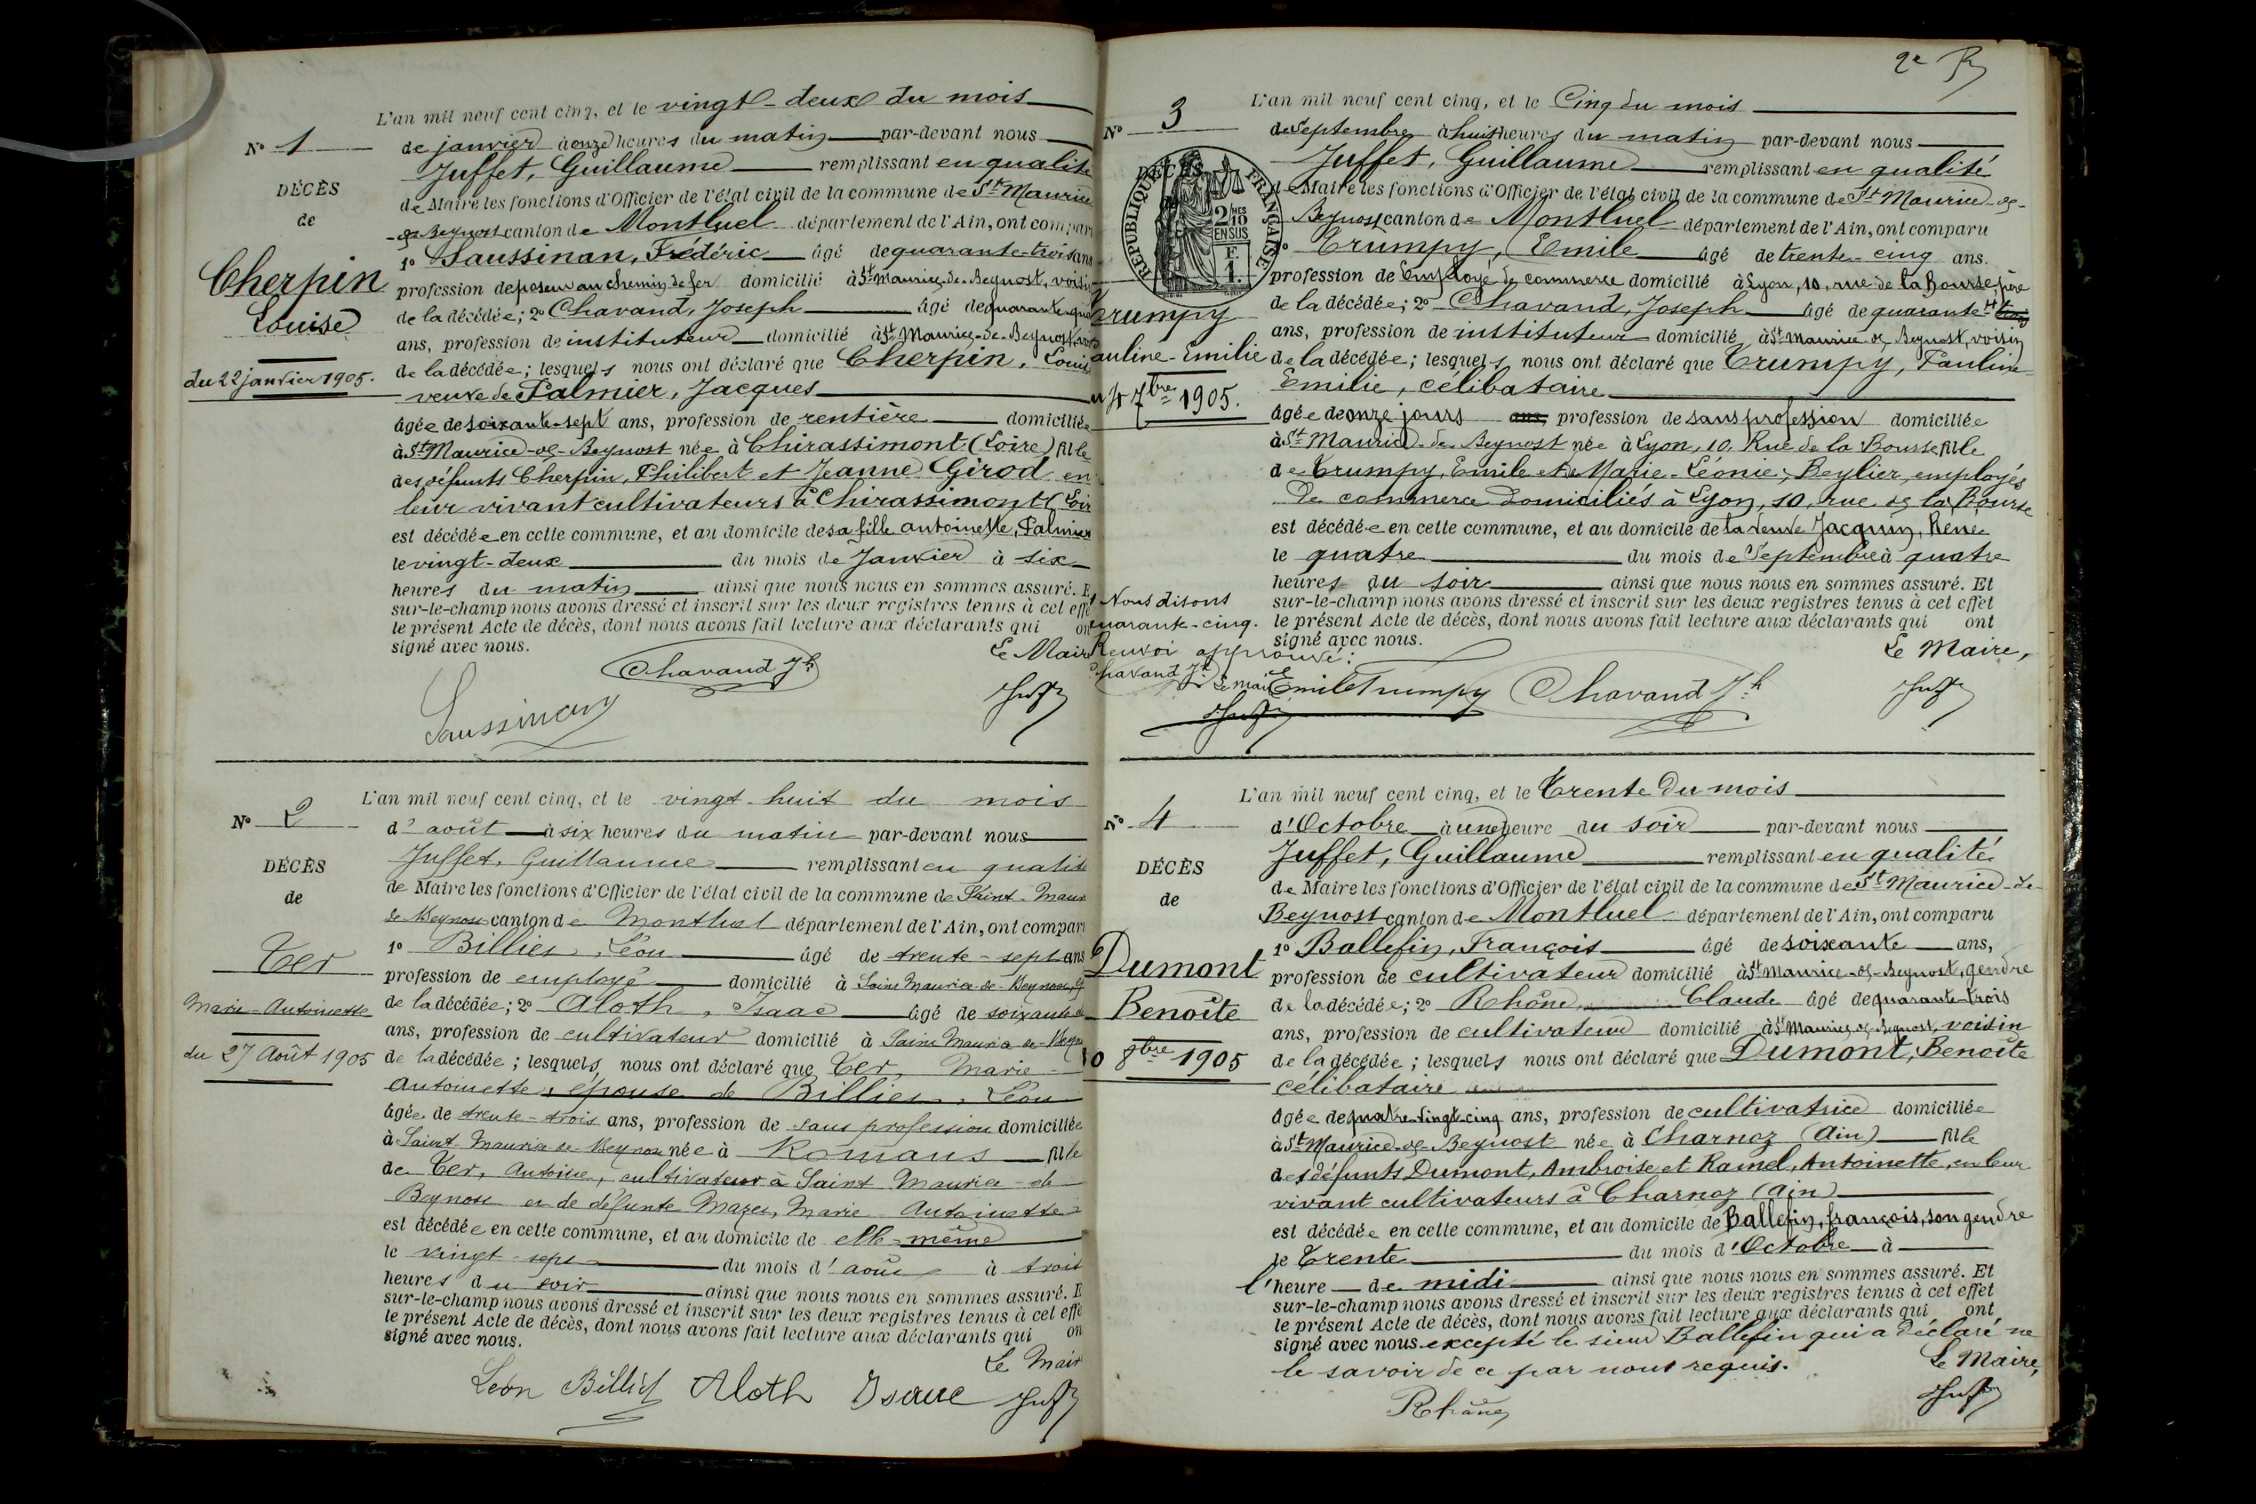 L'an mil neuf cent cinq, et le vingt-deux du mois
N° 1
de janvier à onze heures du matin par-devant nous
Juffet, Guillaume remplissant en qualité
DÉCÈS
de Maire les fonctions d'Officier de l'état civil de la commune de St Maurice
de
-de Beynost canton de Montluel département de l'Ain, ont compar
1° Saussinan, Frédéric âgé de quarante-trois ans
Cherpin
profession de poseur au chemin de fer domicilié à St Maurice-de-Beynost, voisin
Louise
de la décédée ; 2° Chavand, Joseph âgé de quarante-
ans, profession de instituteur domicilié à St Maurice-de-Beynost,
de la décédée ; lesquels nous ont déclaré que Cherpin, Louis
du 22 janvier 1905.
veuve de Palmier, Jacques
âgée de soixante-sept ans, profession de rentière domiciliée
à St Maurice-de-Beynost née à Chirassimont (Loire) fille
des défunts Cherpin, Philibert et Jeanne Girod en
leur vivant cultivateurs à Chirassimont (Loir
est décédée en cette commune, et au domicile de sa fille antoinette, Palmier
le vingt-deux du mois de Janvier à six
heures du matin ainsi que nous nous en sommes assuré. E
sur-le-champ nous avons dressé et inscrit sur les deux registres tenus à cet effe
le présent Acte de décès, dont nous avons fait lecture aux déclarants qui on
signé avec nous.
Le Mair
Chavand Jh
Saussinan
Juffet
L'an mil neuf cent cinq, et le vingt huit du mois
N° 2
d'août à six heures du matin par-devant nous
Juffet, Guillaume remplissant en qualité
DÉCÈS
de Maire les fonctions d'Officier de l'état civil de la commune de Saint-Maur
de
de Beynost canton de Montluel département de l'Ain, ont compar
1° Billiet, Léon âgé de trente-sept ans
Ter
profession de employé domicilié à Saint Maurice de Beynost,
Marie-Antoinette
de la décédée ; 2° Aloth, Isaac âgé de soixante
ans, profession de cultivateur domicilié à Saint Maurice de Beyn
du 27 Août 1905
de la décédée ; lesquels nous ont déclaré que Ter, Marie-
Antoinette, épouse de Billiet, Léon
âgée de trente-trois ans, profession de sans profession domiciliée
à Saint Maurice de Beynost née à Romans fille
de Ter, Antoine, cultivateur à Saint Maurice-de-
Beynost et de défunte Marie Antoinette
est décédée en cette commune, et au domicile de elle-même
le vingt-sept du mois d'août à trois
heures du soir ainsi que nous nous en sommes assuré. E
sur-le-champ nous avons dressé et inscrit sur les deux registres tenus à cet effe
le présent Acte de décès, dont nous avons fait lecture aux déclarants qui on
signé avec nous.
Le Mair
Léon Billiet Aloth Isaac Juffet
2e
L'an mil neuf cent cinq, et le Cinq du mois
N° 3
de Septembre à huit heures du matin par-devant nous
Juffet, Guillaume remplissant en qualité
DÉCÈS
RÉPUBLIQUE FRANÇAISE
2/10 MES EN SUS
F. 1.
de Maire les fonctions d'Officier de l'état civil de la commune de St Maurice-de-
Beynost canton de Montluel département de l'Ain, ont comparu
1° Trumpy, Emile âgé de trente-cinq ans.
profession de Employé de commerce domicilié à Lyon, 10, rue de la Bourse, père
de la décédée ; 2° Chavand, Joseph âgé de quarante
Trumpy
ans, profession de instituteur domicilié à St Maurice de Beynost, voisin
auline-Emilie
de la décédée ; lesquels nous ont déclaré que Trumpy, Pauline
Emilie, célibataire
u 4 7bre 1905.
âgée de onze jours ans, profession de sans profession domiciliée
à St Maurice-de-Beynost née à Lyon, 10, Rue de la Bourse fille
de Trumpy, Emile et de Marie-Léonie, Beylier, employés
de commerce domiciliés à Lyon, 10, rue de la Bourse
est décédée en cette commune, et au domicile de la veuve Jacquin, René
le quatre du mois de Septembre à quatre
heures du soir ainsi que nous nous en sommes assuré. Et
sur-le-champ nous avons dressé et inscrit sur les deux registres tenus à cet effet
le présent Acte de décès, dont nous avons fait lecture aux déclarants qui ont
signé avec nous.
Le Maire,
Nous disons
quarante-cinq.
Renvoi approuvé :
Chavand Jh Le Maire
Juffet
Emile Trumpy Chavand Jh Juffet
L'an mil neuf cent cinq, et le Trente du mois
N° 4
d'Octobre à une heure du soir par-devant nous
Juffet, Guillaume remplissant en qualité
DÉCÈS
de Maire les fonctions d'Officier de l'état civil de la commune de St Maurice-de-
de
Beynost canton de Montluel département de l'Ain, ont comparu
1° Ballefin, François âgé de soixante ans,
Dumont
profession de cultivateur domicilié à St Maurice-de-Beynost, gendre
Benoîte
de la décédée ; 2° Rhône, Claude âgé de quarante-trois
ans, profession de cultivateur domicilié à St Maurice-de-Beynost, voisin
0 8bre 1905
de la décédée ; lesquels nous ont déclaré que Dumont, Benoîte
célibataire
âgée de quatre-vingt-cinq ans, profession de cultivatrice domiciliée
à St Maurice-de-Beynost née à Charnoz (Ain) fille
des défunts Dumont, Ambroise et Ramel, Antoinette, en leur
vivant cultivateurs à Charnoz (Ain)
est décédée en cette commune, et au domicile de Ballefin, françois, son gendre
le Trente du mois d'Octobre à
l'heure de midi ainsi que nous nous en sommes assuré. Et
sur-le-champ nous avons dressé et inscrit sur les deux registres tenus à cet effet
le présent Acte de décès, dont nous avons fait lecture aux déclarants qui ont
signé avec nous excepté le sieur Ballefin qui a déclaré ne
le savoir de ce par nous requis.
Le Maire,
Rhône
Juffet